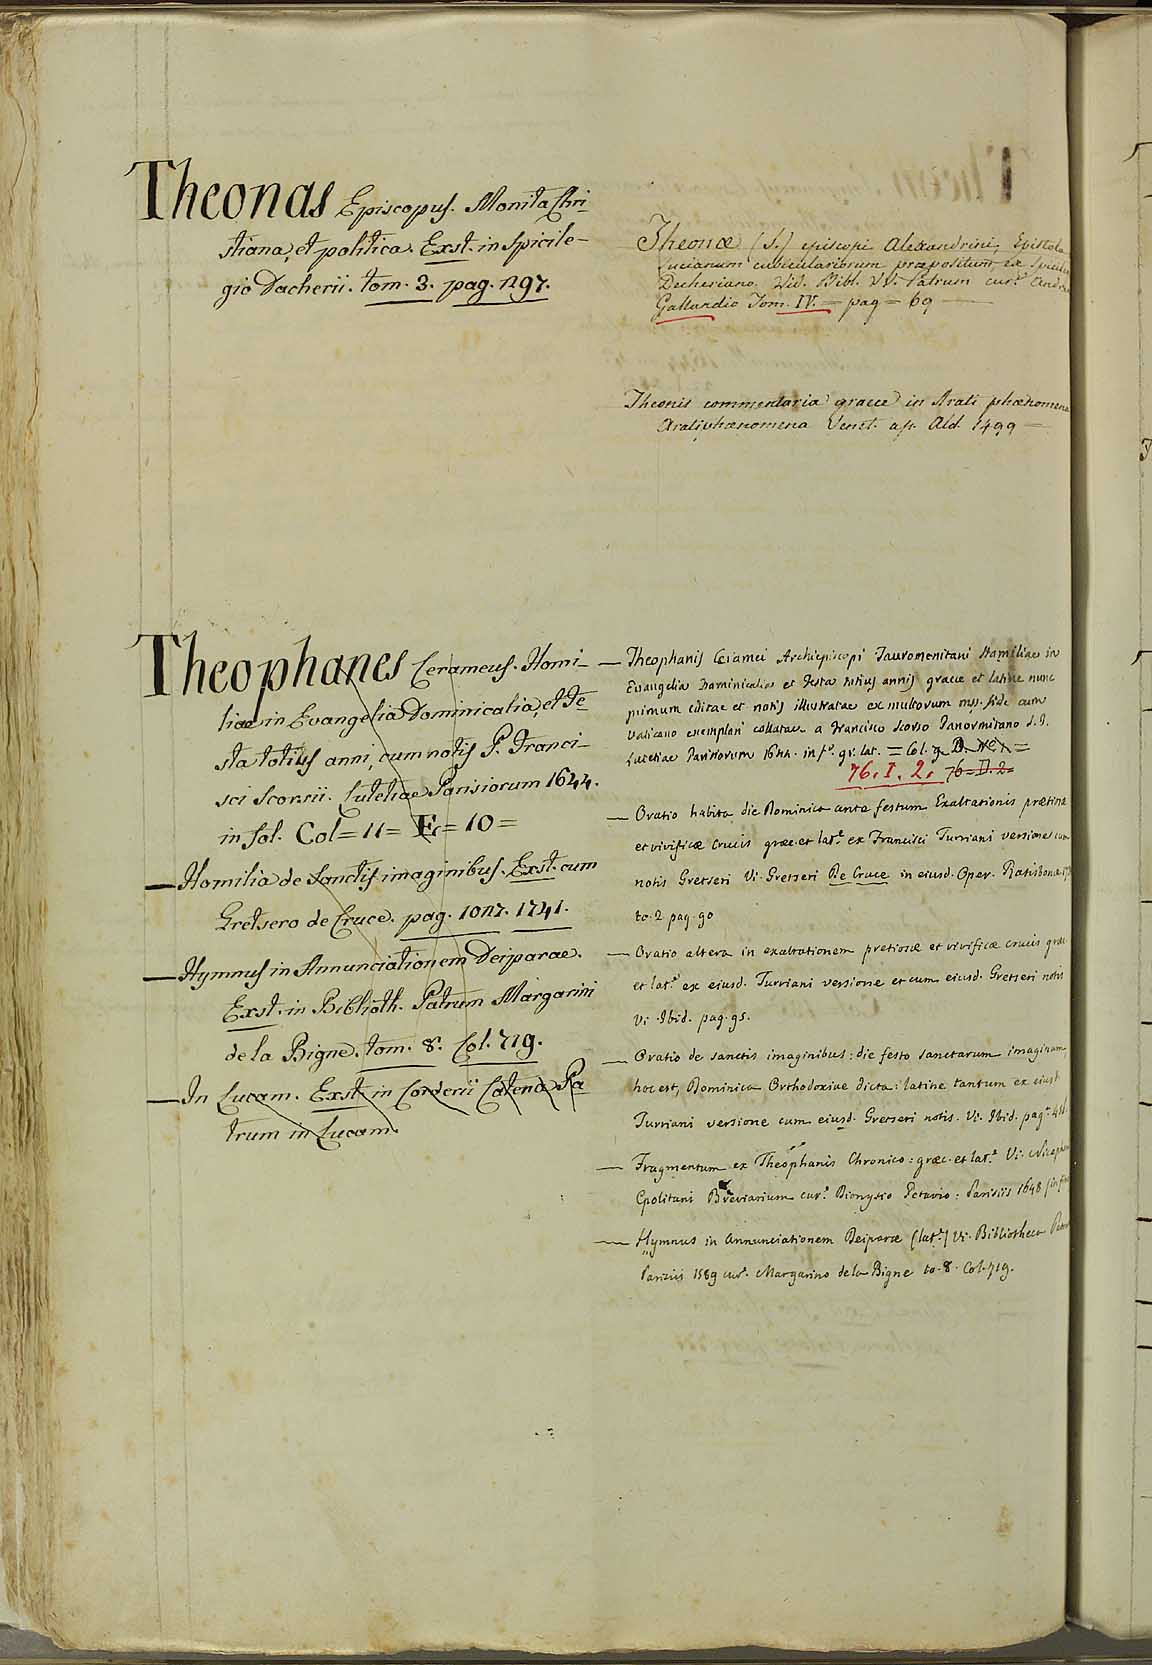 Theonas Episcopus. Monita Chri-
stiana, et politica. Exst. in Spicile-
gio Dacherii. tom. 3. pag. 297.
Theophanes Cerameus. Homi-
liae in Evangelia Dominicalia, et Fe-
sta totius anni, cum notis P. Franci-
sci Scorsii. Lutetiae Parisiorum 1644.
in fol. Col = 11 = E = 10 =
— Homilia de Sanctis imaginibus. Exst. cum
Gretsero de Cruce. pag. 1017. 1741.
— Hymnus in Annunciationem Deiparae.
Exst. in Biblioth. Patrum Margarini
de la Bigne. tom. 8. Col. 719.
— In Lucam. Exst. in Corderii Catena Pa-
trum in Lucam.
Theonae (S.) episcopi Alexandrini, Epistola
Lucianum cubiculariorum praepositum, ex Spicile
Decheriano. Vid. Bibl. VV. Patrum cur.e Andrea
Gallandio Tom. IV. = pag = 69
Theonis commentaria graece in Arati phaenomena
Arati phaenomena Venet. ap. Ald. 1499 =
— Theophanis Ceramei Archiepiscopi Tauromenitani Homiliae in
Evangelia Dominicalia et Festa totius annis graece et latine nunc
primum editae et notis illustratae ex multorum mss. fide cum
Vaticano exemplari collatae a Francisco Scorso Panormitano S.J.
Lutetiae Parisiorum 1644. in f.o gr. lat. = Col.
76. I. 2. 76=D.2=
— Oratio habita die Dominica ante festum Exaltationis pretiosae
et vivificae Crucis graec. et lat.e ex Francisci Turriani versione cum
notis Gretseri Vi. Gretseri De Cruce in eiusd. Oper. Ratisbonae
to. 2 pag. 90
— Oratio altera in exaltationem pretiosae et vivificae crucis graec
et lat.e ex eiusd. Turriani versione et cum eiusd. Gretseri notis
Vi. Ibid. pag. 95.
— Oratio de sanctis imaginibus: die festo sanctarum imaginum,
hoc est, Dominica Orthodoxiae dicta: latine tantum ex eiusd
Turriani versione cum eiusd. Gretseri notis. Vi. Ibid. pag.
— Fragmentum ex Theophanis Chronico: graec. et lat.e Vi. Nicephori
Cpolitani Breviarium cur.e Dionysio Petavio: Parisiis 1648
— Hymnus in Annunciationem Deiparae (lat.e) Vi. Bibliotheca Patrum
Parisiis 1589 cur.e Margarino de la Bigne to. 8. Col. 719.